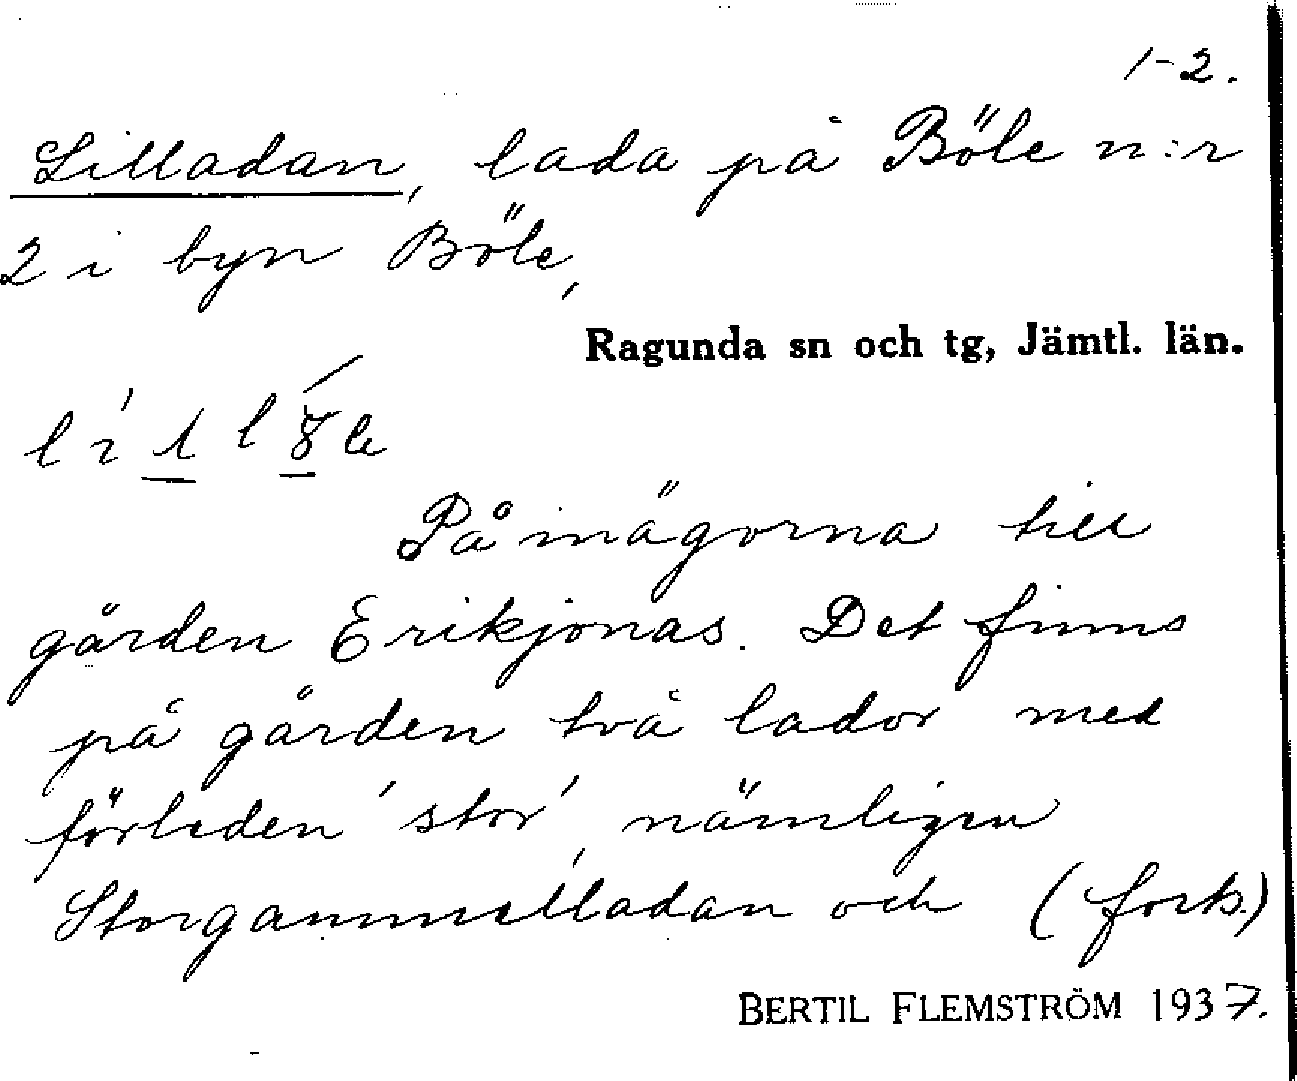 1-2.
Lilladan, lada på Böle n:r
2 i byn Böle,
Ragunda sn och tg, Jämtl. län.
På inägorna till
gården Erikjonas. Det finns
på gården två lador med
förleden 'stor', nämligen
Storgammelladan och (forts.)
BERTIL FLEMSTRÖM 1937.